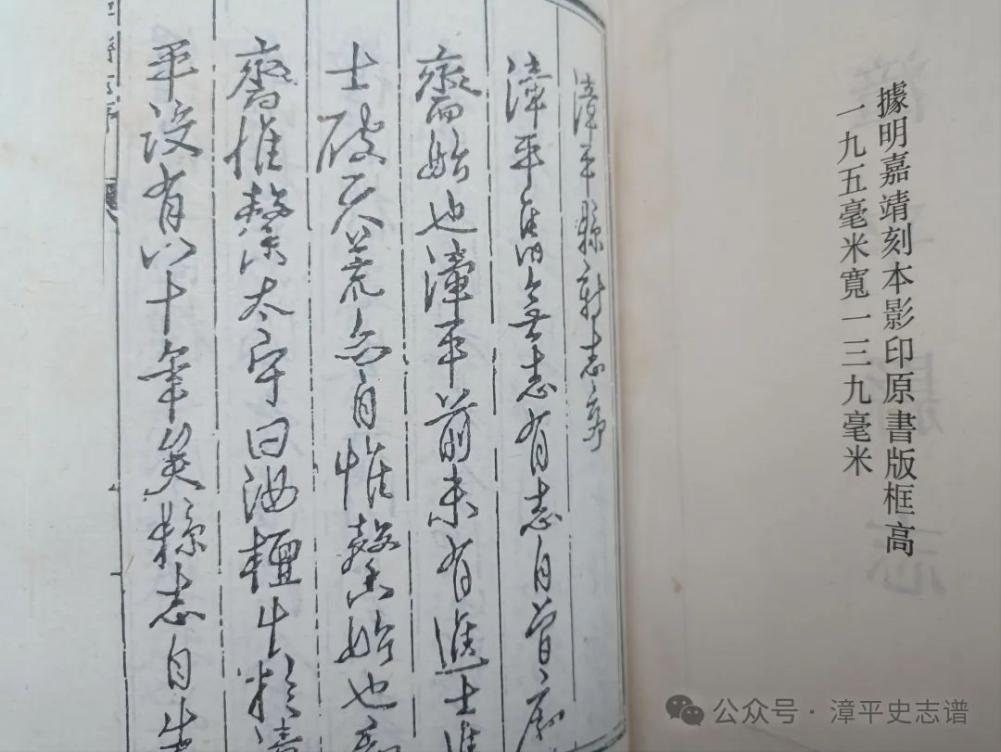 據明嘉靖刻本影印原書版框高
一九五毫米寬一三九毫米
漳平縣新志序
漳平舊無志有志自曾廓
齋始也漳平前未有進士進
士破天荒亦自惟馨始也
齋惟馨太守曰汝檀生於漳
平設有八十年矣縣志自
公众号·漳平史志谱